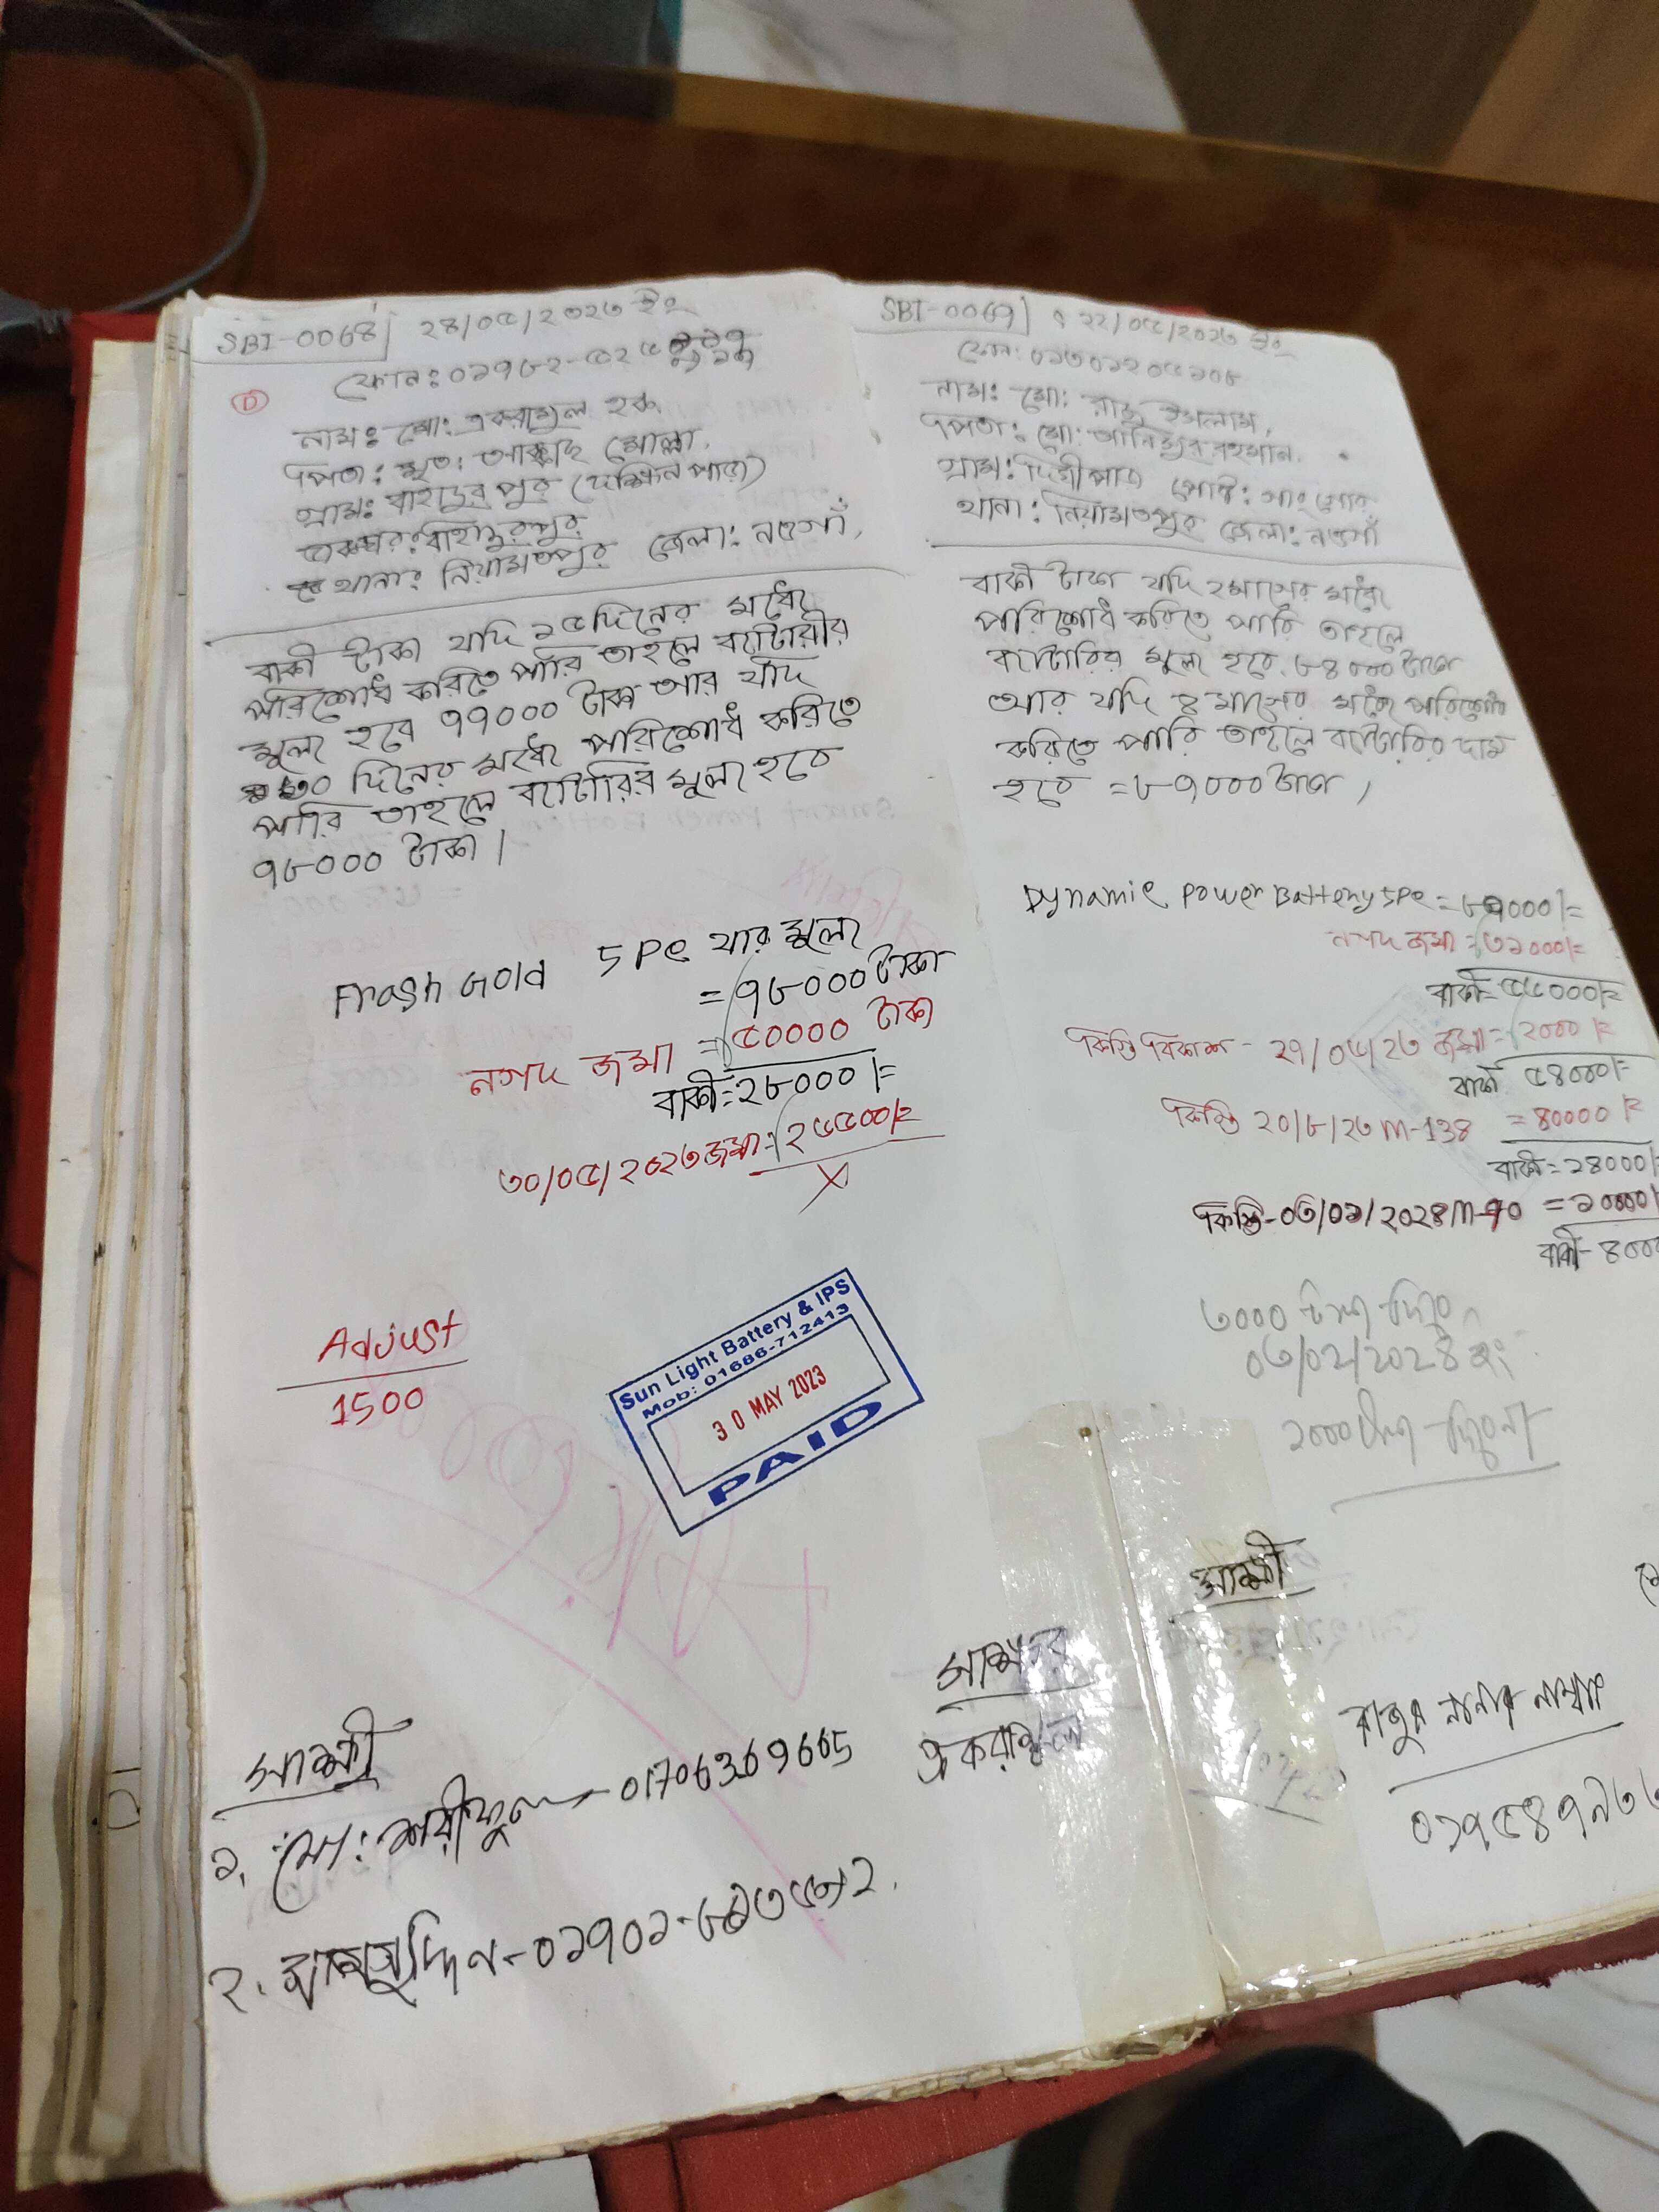 SBI-0068| ২৪/০৫/২০২৩ ইং
ফোন: ০১৭৮২-৫২৫
নাম: মো: একরামুল হক
পিতা: মৃত: আক্কাছ মোল্লা,
গ্রাম: বাহাদুরপুর (দক্ষিন পাড়া)
ডাকঘর: বাহাদুরপুর
থানা: নিয়ামতপুর জেলা: নওগাঁ,
বাকী টাকা যদি ১৫দিনের মধ্যে
পরিশোধ করিতে পারি তাহলে ব্যাটারীর
মূল্য হবে ৭৭০০০ টাকা আর যদি
৩০ দিনের মধ্যে পরিশোধ করিতে
পারি তাহলে ব্যাটারির মূল্য হবে
৭৮০০০ টাকা।
Frash Gold 5 Pc যার মূল্য
= ৭৮০০০ টাকা
নগদ জমা = ৫০০০০ টাকা
বাকী = ২৮০০০/=
৩০/০৫/২০২৩ জমা = ২৬৫০০/=
X
Adjust
1500
Sun Light Battery & IPS
Mob: 01686-712413
30 MAY 2023
PAID
সাক্ষী
১. মো: শরীফুল - 01706369665
২.
সাক্ষর
একরামুল
SBI-0069| ২২/০৫/২০২৩ ইং
ফোন: ০১৩০১২০৫১০৮
নাম: মো: রাজু ইসলাম,
পিতা: মো: আনিছুর রহমান.
গ্রাম: দিঘীপাড়া পোষ্ট:
থানা: নিয়ামতপুর জেলা: নওগাঁ
বাকী টাকা যদি ২মাসের মধ্যে
পরিশোধ করিতে পারি তাহলে
ব্যাটারির মূল্য হবে. ৮৪০০০ টাকা
আর যদি ৪ মাসের মধ্যে পরিশোধ
করিতে পারি তাহলে ব্যাটারির দাম
হবে = ৮৭০০০ টাকা,
Dynamic Power Battery 5Pc = ৮৭০০০/=
নগদ জমা = ৩১০০০/=
বাকী = ৫৬০০০/=
কিস্তি বিকাশ - ২৭/০৬/২৩ জমা = ২০০০/=
বাকী ৫৪০০০/=
কিস্তি ২০/৮/২৩ M-138 = ৪০০০০/=
বাকী = ১৪০০০/=
কিস্তি - ০৩/০১/২০২৪ M-90 = ১০০০০/=
বাকী - ৪০০০
৩০০০ টাকা দিবে
০৩/০২/২০২৪ ইং
১০০০ টাকা দিবেনা
সাক্ষী
রাজুর নানার নাম্বার